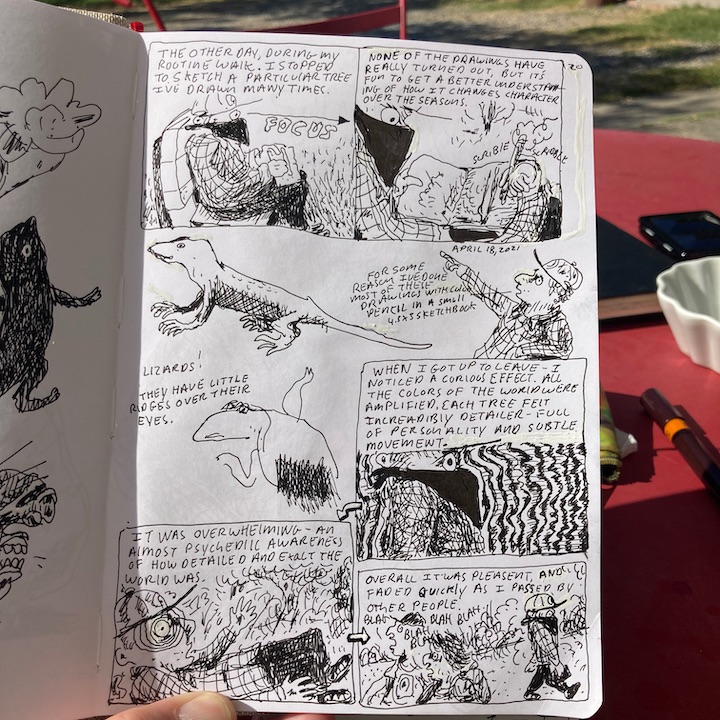 THE OTHER DAY, DURING MY
ROUTINE WALK. I STOPPED
TO SKETCH A PARTICULAR TREE
IVE DRAWN MANY TIMES.
FOCUS
20
NONE OF THE DRAWINGS HAVE
REALLY TURNED OUT, BUT ITS
FUN TO GET A BETTER UNDERSTAN-
ING OF HOW IT CHANGES CHARACTER
OVER THE SEASONS.
SCRIBLE
SCRIBBLE
APRIL 18, 2021
FOR SOME
REASON IVE DONE
MOST OF THESE
DRAWINGS WITH COLOR
PENCIL IN A SMALL
SKETCHBOOK
LIZARDS!
THEY HAVE LITTLE
RIDGES OVER THEIR
EYES.
WHEN I GOT UP TO LEAVE - I
NOTICED A CURIOUS EFFECT. ALL
THE COLORS OF THE WORLD WERE
AMPLIFIED. EACH TREE FELT
INCREADIBLY DETAILER - FULL
OF PERSONALITY AND SUBTLE
MOVEMENT.
IT WAS OVERWHELMING - AN
ALMOST PSYCHEDILIC AWARENESS
OF HOW DETAILED AND EXALT THE
WORLD WAS.
OVERALL IT WAS PLEASENT, AND
FADED QUICKLY AS I PASSED BY
OTHER PEOPLE.
BLAH
BLAH
BLAH BLAH
BLAH